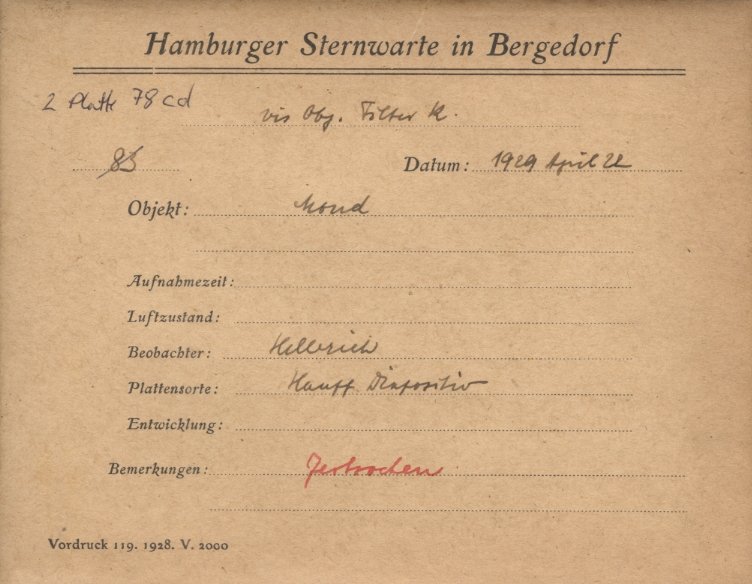 Hamburger Sternwarte in Bergedorf
2 Platte 78cd
vis Obj. Filter K.
85
Datum: 1929 April 22
Objekt: Mond
Aufnahmezeit:
Luftzustand:
Beobachter: Hellerich
Plattensorte: Hauff Diapositiv
Entwicklung:
Bemerkungen: Zerbrochen
Vordruck 119. 1928. V. 2000